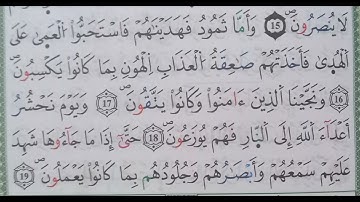 لَا يُنصَرُونَ ۝١٥ وَأَمَّا ثَمُودُ فَهَدَيْنَٰهُمْ فَٱسْتَحَبُّوا۟ ٱلْعَمَىٰ عَلَى
ٱلْهُدَىٰ فَأَخَذَتْهُمْ صَٰعِقَةُ ٱلْعَذَابِ ٱلْهُونِ بِمَا كَانُوا۟ يَكْسِبُونَ
۝١٦ وَنَجَّيْنَا ٱلَّذِينَ ءَامَنُوا۟ وَكَانُوا۟ يَتَّقُونَ ۝١٧ وَيَوْمَ نَحْشُرُ
أَعْدَآءَ ٱللَّهِ إِلَى ٱلنَّارِ فَهُمْ يُوزَعُونَ ۝١٨ حَتَّىٰٓ إِذَا مَا جَآءُوهَا شَهِدَ
عَلَيْهِمْ سَمْعُهُمْ وَأَبْصَٰرُهُمْ وَجُلُودُهُم بِمَا كَانُوا۟ يَعْمَلُونَ ۝١٩